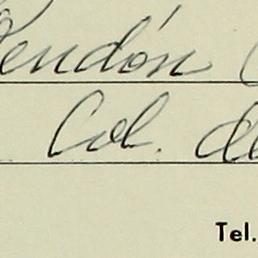 Rendón
Col. de
Tel.